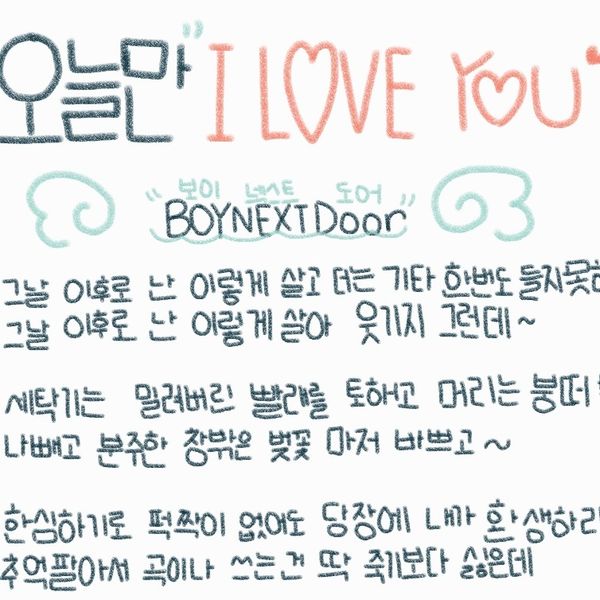 오늘만 "I LOVE YOU
"보이 넥스트 도어"
BOYNEXTDoor
그날 이후로 난 이렇게 살고 더는 기타 한번도 들지못하
그날 이후로 난 이렇게 살아 웃기지 그런데~
세탁기는 밀려버린 빨래를 토하고 머리는 붕떠
나빼고 분주한 창밖은 벚꽃 마저 바쁘고~
한심하기로 퍽짝이 없어도 당장에 내가 환생하리
추억팔아서 곡이나 쓰는건 딱 죽기보다 싫은데